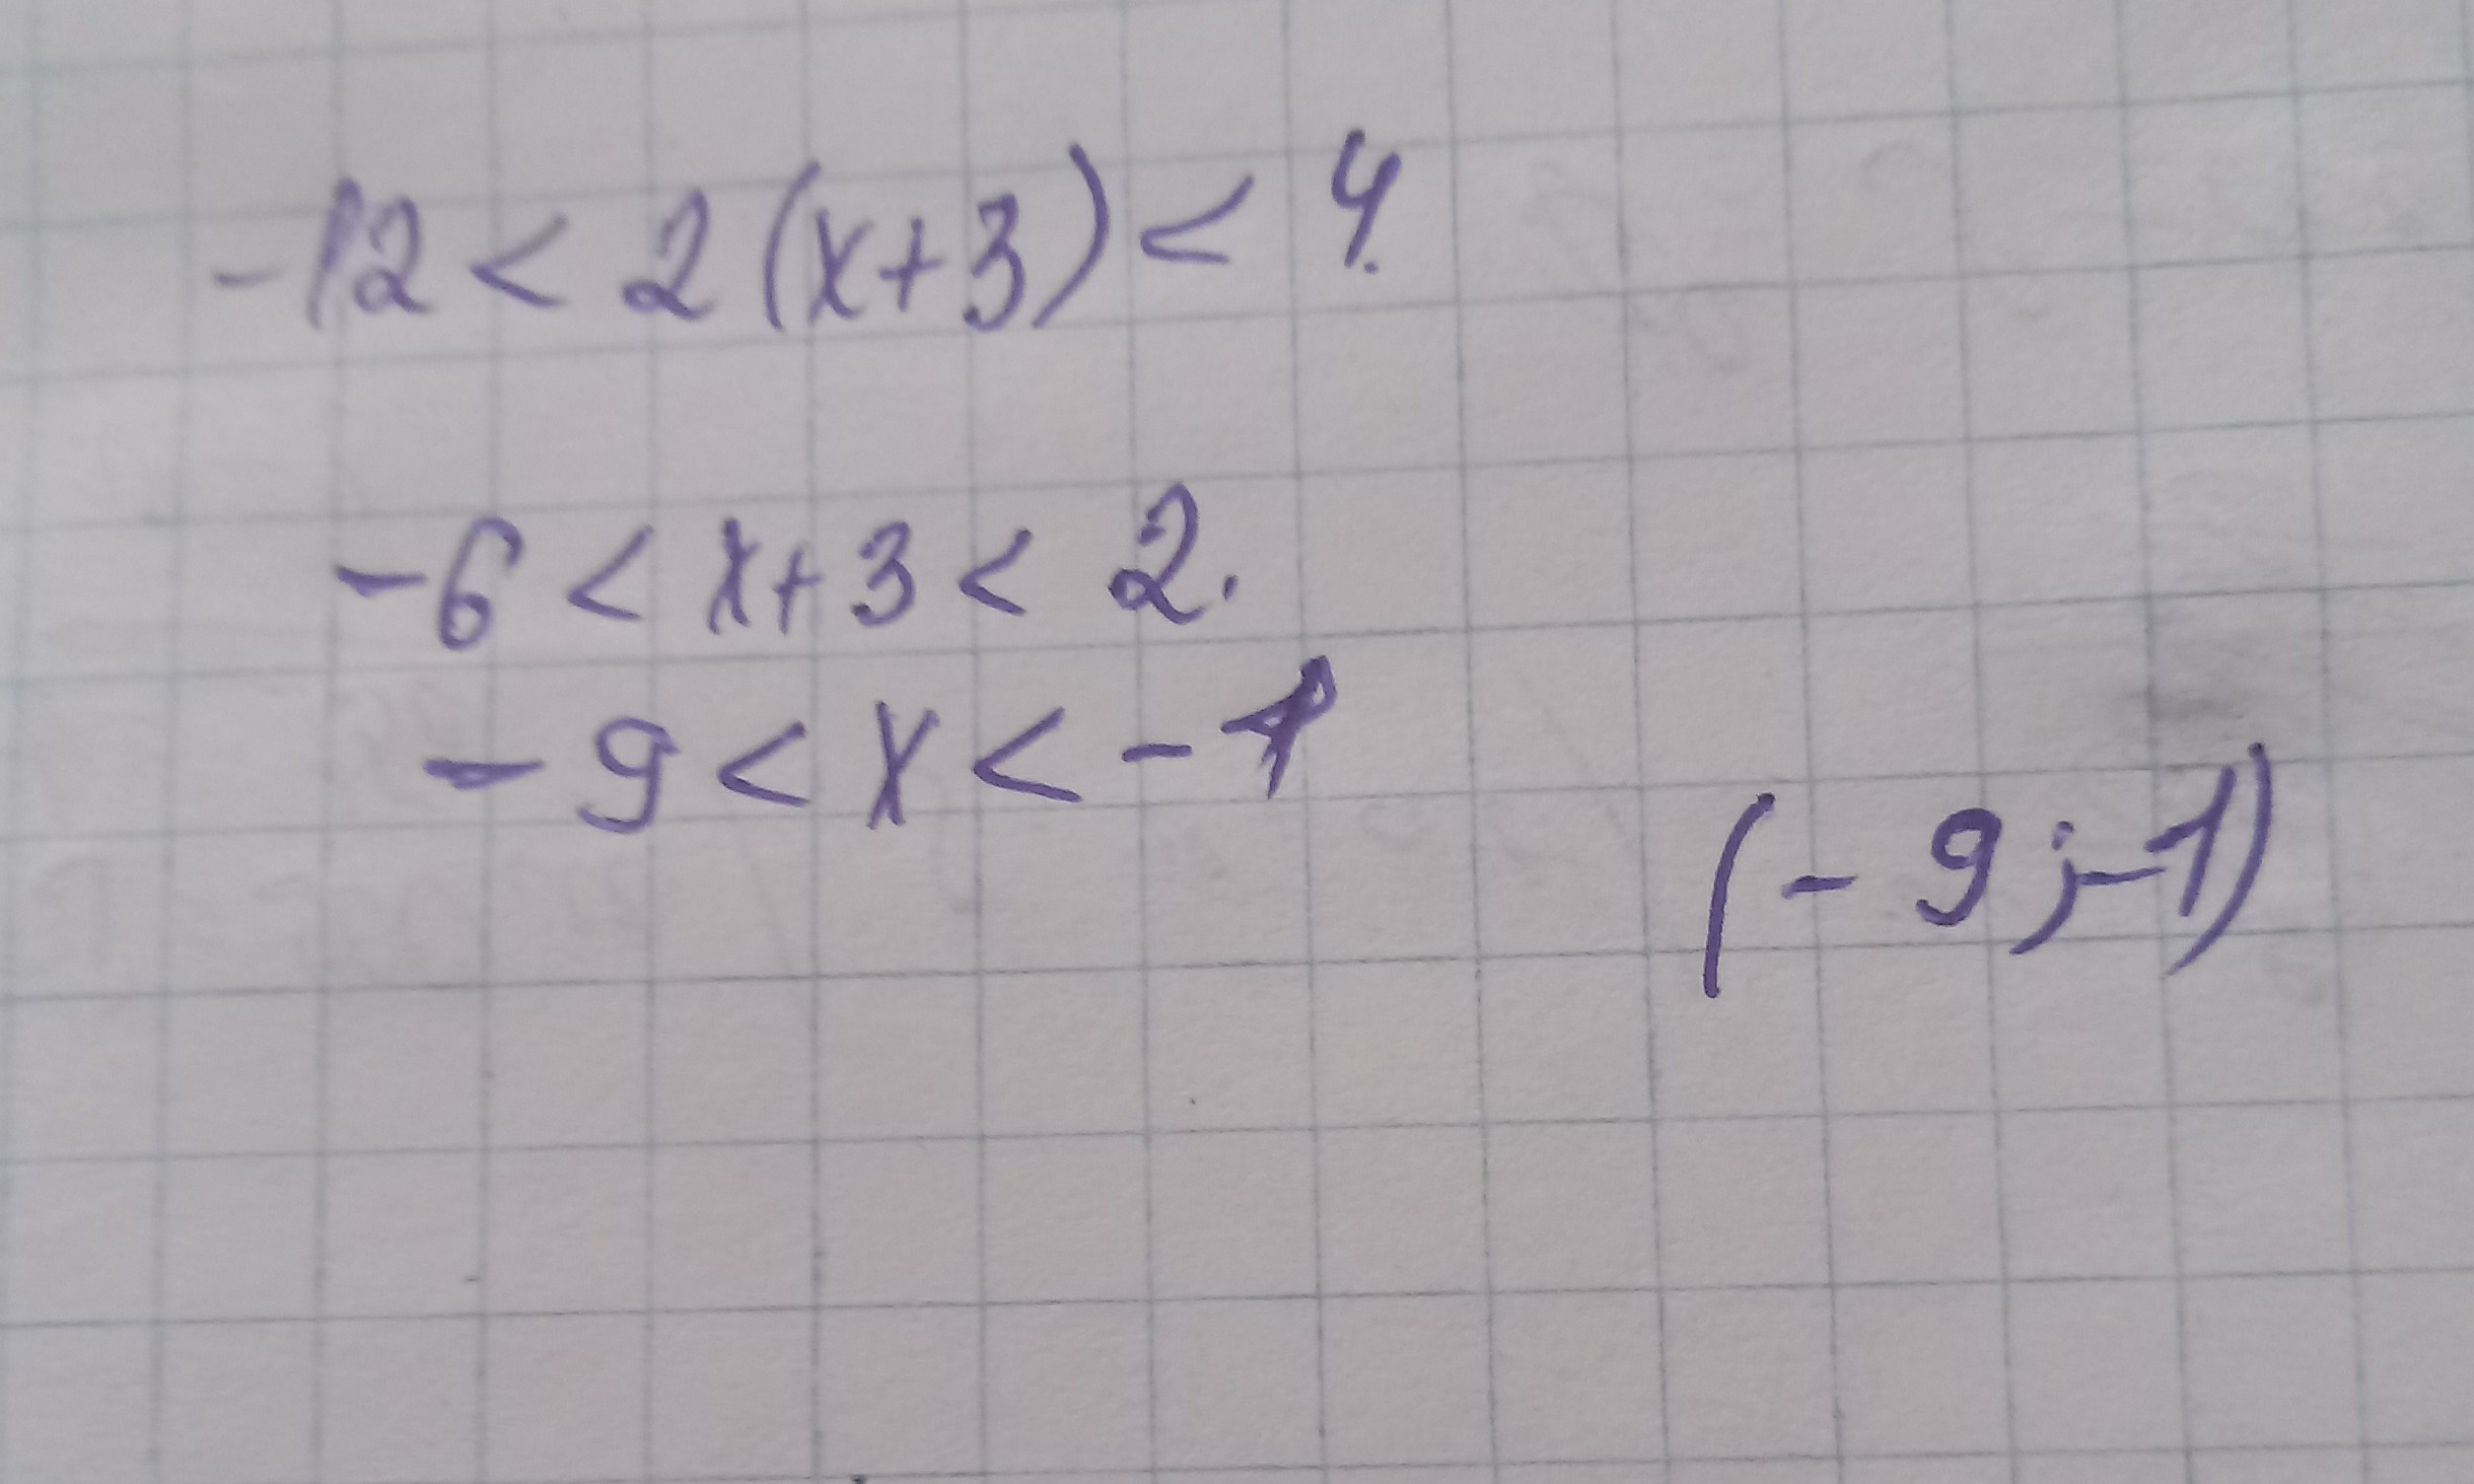 -12 < 2(x+3) < 4.
-6 < x+3 < 2.
-9 < x < -1
(-9;-1)